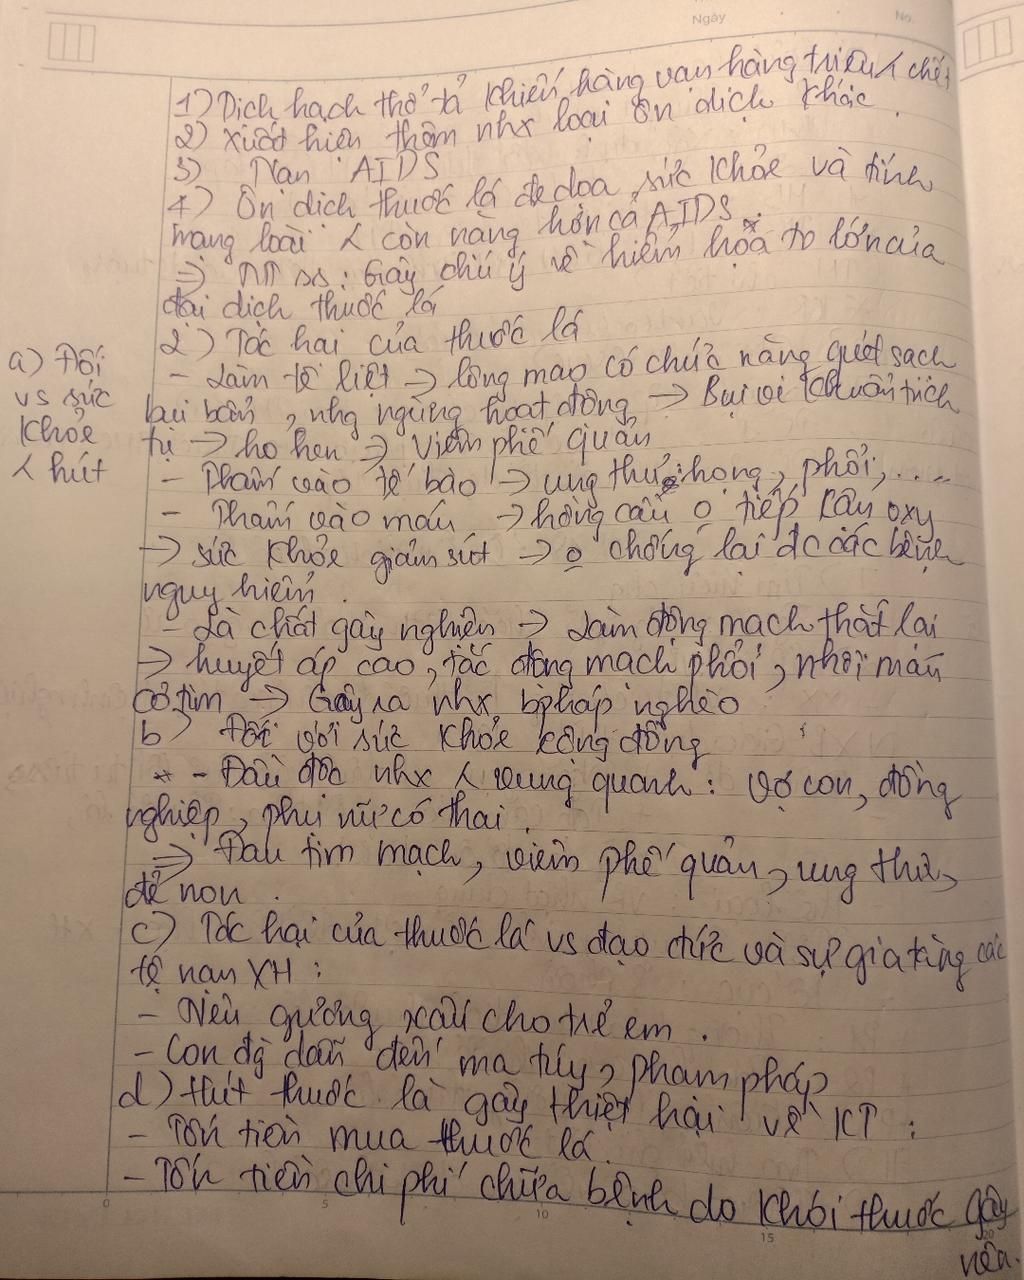 Ngày
No.
1) Dịch hạch thổ tả khiến hàng vạn hàng triệu λ chết
2) Xuất hiện thêm nhx loại ôn dịch khác.
3) Nạn AIDS
4) Ôn dịch thuốc lá đe dọa sức khỏe và tính
mạng loài λ còn nặng hơn cả AIDS.
=> NT SS: Gây chú ý về hiểm họa to lớn của
đại dịch thuốc lá
2) Tác hại của thuốc lá
a) Đối
vs sức
khỏe
λ hút
- Làm tê liệt -> lông mao có chức năng quét sạch
bụi bẩn, nhg ngừng hoạt động -> Bụi vi khuẩn tích
tụ -> ho hen -> Viêm phế quản
- Thấm vào tế bào -> ung thư họng, phổi,....
- Thấm vào máu -> hồng cầu o tiếp cận oxy
-> sức khỏe giảm sút -> o chống lại đc các bệnh
nguy hiểm.
- Là chất gây nghiện -> Làm động mạch thắt lại
-> huyết áp cao, tắc động mạch phổi, nhồi máu
cơ tim -> Gây ra nhx
b) Đối với sức khỏe cộng đồng
* - Đầu độc nhx λ xung quanh: vợ con, đồng
nghiệp, phụ nữ có thai.
=> Đau tim mạch, viêm phế quản, ung thư,
đẻ non.
c) Tác hại của thuốc lá vs đạo đức và sự gia tăng các
tệ nạn XH:
- Nêu gương xấu cho trẻ em.
- Con đg dẫn đến ma túy, phạm pháp
d) Hút thuốc lá gây thiệt hại về KT:
- Tốn tiền mua thuốc lá.
- Tốn tiền chi phí chữa bệnh do khói thuốc gây
nên.
0 5 10 15 20